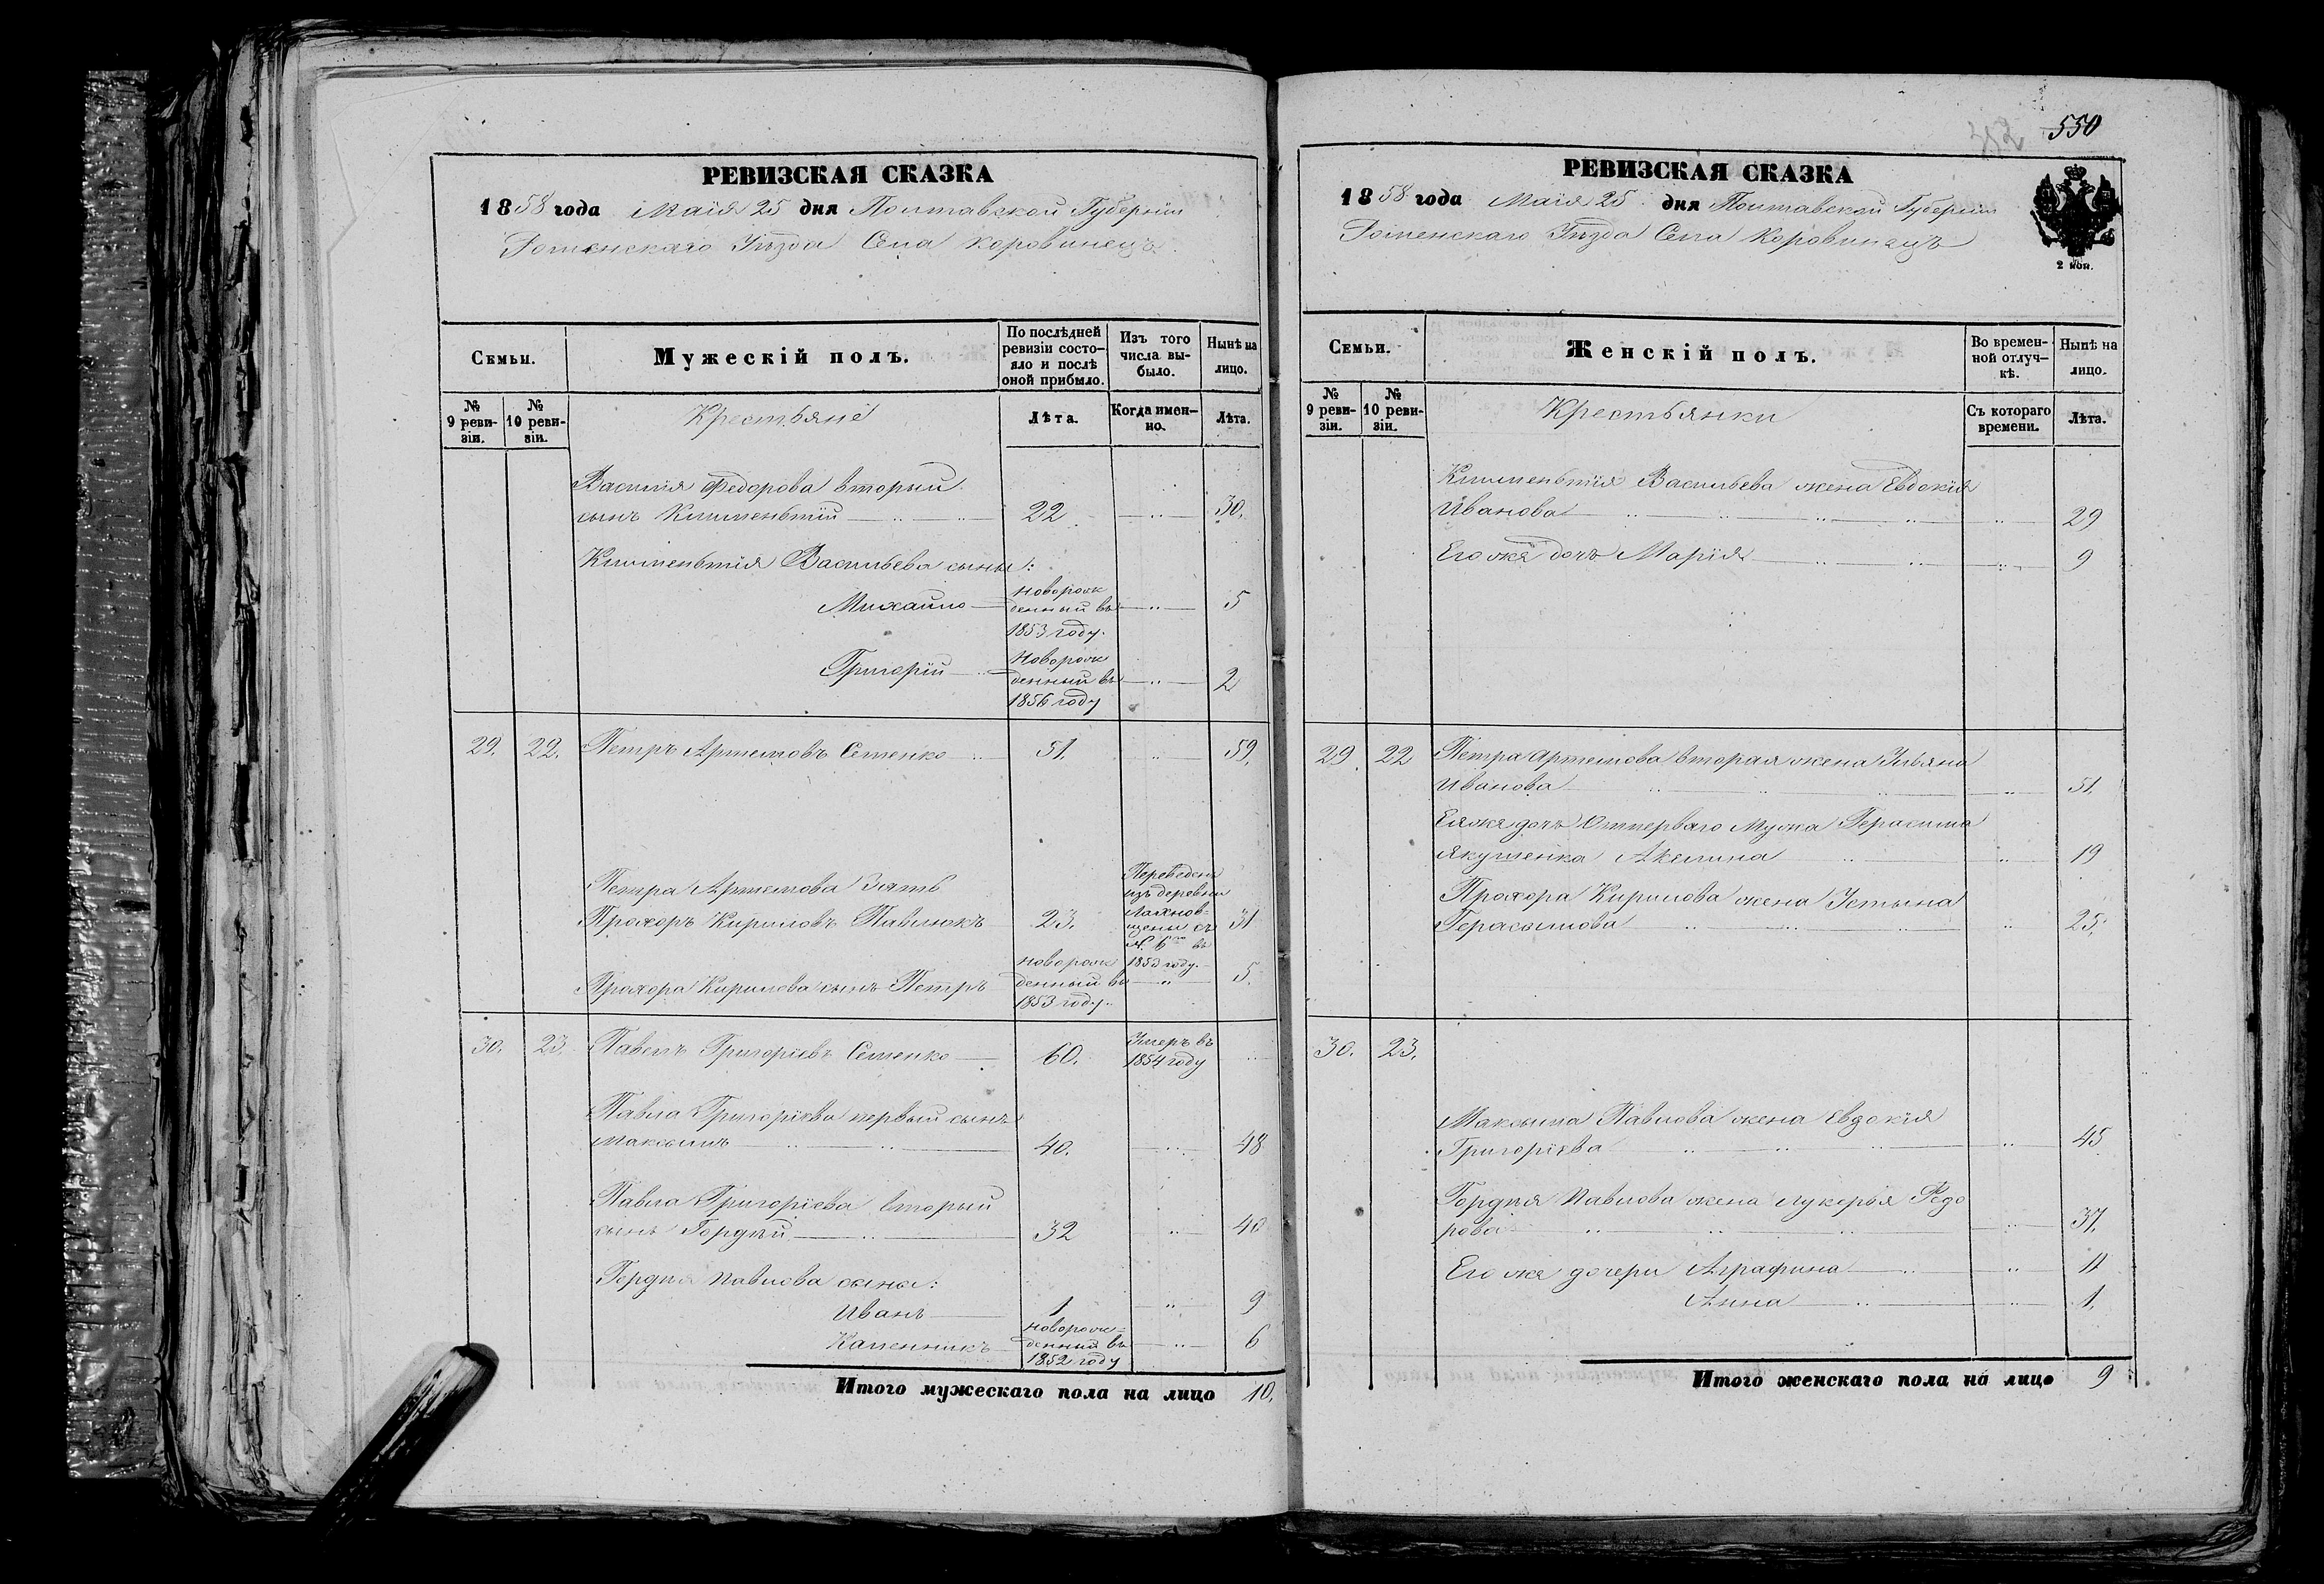 РЕВИЗСКАЯ СКАЗКА
1858 года Маія 25 дня Полтавской Губерніи
Роменскаго Уѣзда Села Коровинецъ.
Семьи.
Мужескій полъ.
По послѣдней ревизіи состояло и послѣ оной прибыло.
Изъ того числа выбыло.
Нынѣ на лицо.
№ 9 ревизіи.
№ 10 ревизіи.
Крестьяне
Лѣта.
Когда именно.
Лѣта.
Василія Федорова вторый
сынъ Климентій 22 30.
Климентія Васильева сыны:
Михайло новорожденный въ 1853 году. 5
Григорій Новорожденный въ 1856 году 2
29. 22. Петръ Артемовъ Семенко 51. 59.
Петра Артемова Зять
Прохоръ Кириловъ Павлюкъ 23. Переведенъ изъ деревни въ 1853 году. 31
Прохора Кирилова сынъ Петръ новорожденный въ 1853 году. 5.
30. 23. Павелъ Григоріевъ Семенко 60. Умеръ въ 1854 году
Павла Григоріева первый сынъ
Максимъ 40. 48
Павла Григоріева вторый
сынъ Гордѣй 32 40
Гордѣя Павлова сыны:
Иванъ 1 9
новорожденный въ 1852 году 6
Итого мужескаго пола на лицо 10.
550
РЕВИЗСКАЯ СКАЗКА
1858 года Маія 25 дня Полтавской Губерніи
Роменскаго Уѣзда Села Коровинецъ
2 коп.
Семьи.
Женскій полъ.
Во временной отлучкѣ.
Нынѣ на лицо.
№ 9 ревизіи.
№ 10 ревизіи.
Крестьянки
Съ котораго времени.
Лѣта.
Климентія Васильева жена Евдокія
Иванова 29
Его же дочь Марія 9
29. 22 Петра Артемова вторая жена Ульяна
Иванова 51.
Ея же дочь Отпервого Мужа Герасима
Якушенка Акелина 19
Прохора Кирилова жена Устына
Герасымова 25.
30. 23.
Максыма Павлова жена Евдокія
Григоріева 45
Гордѣя Павлова жена Лукерья Федо
рова 37.
Его же дочери Аграфина 11
Анна 1.
Итого женскаго пола на лицо 9